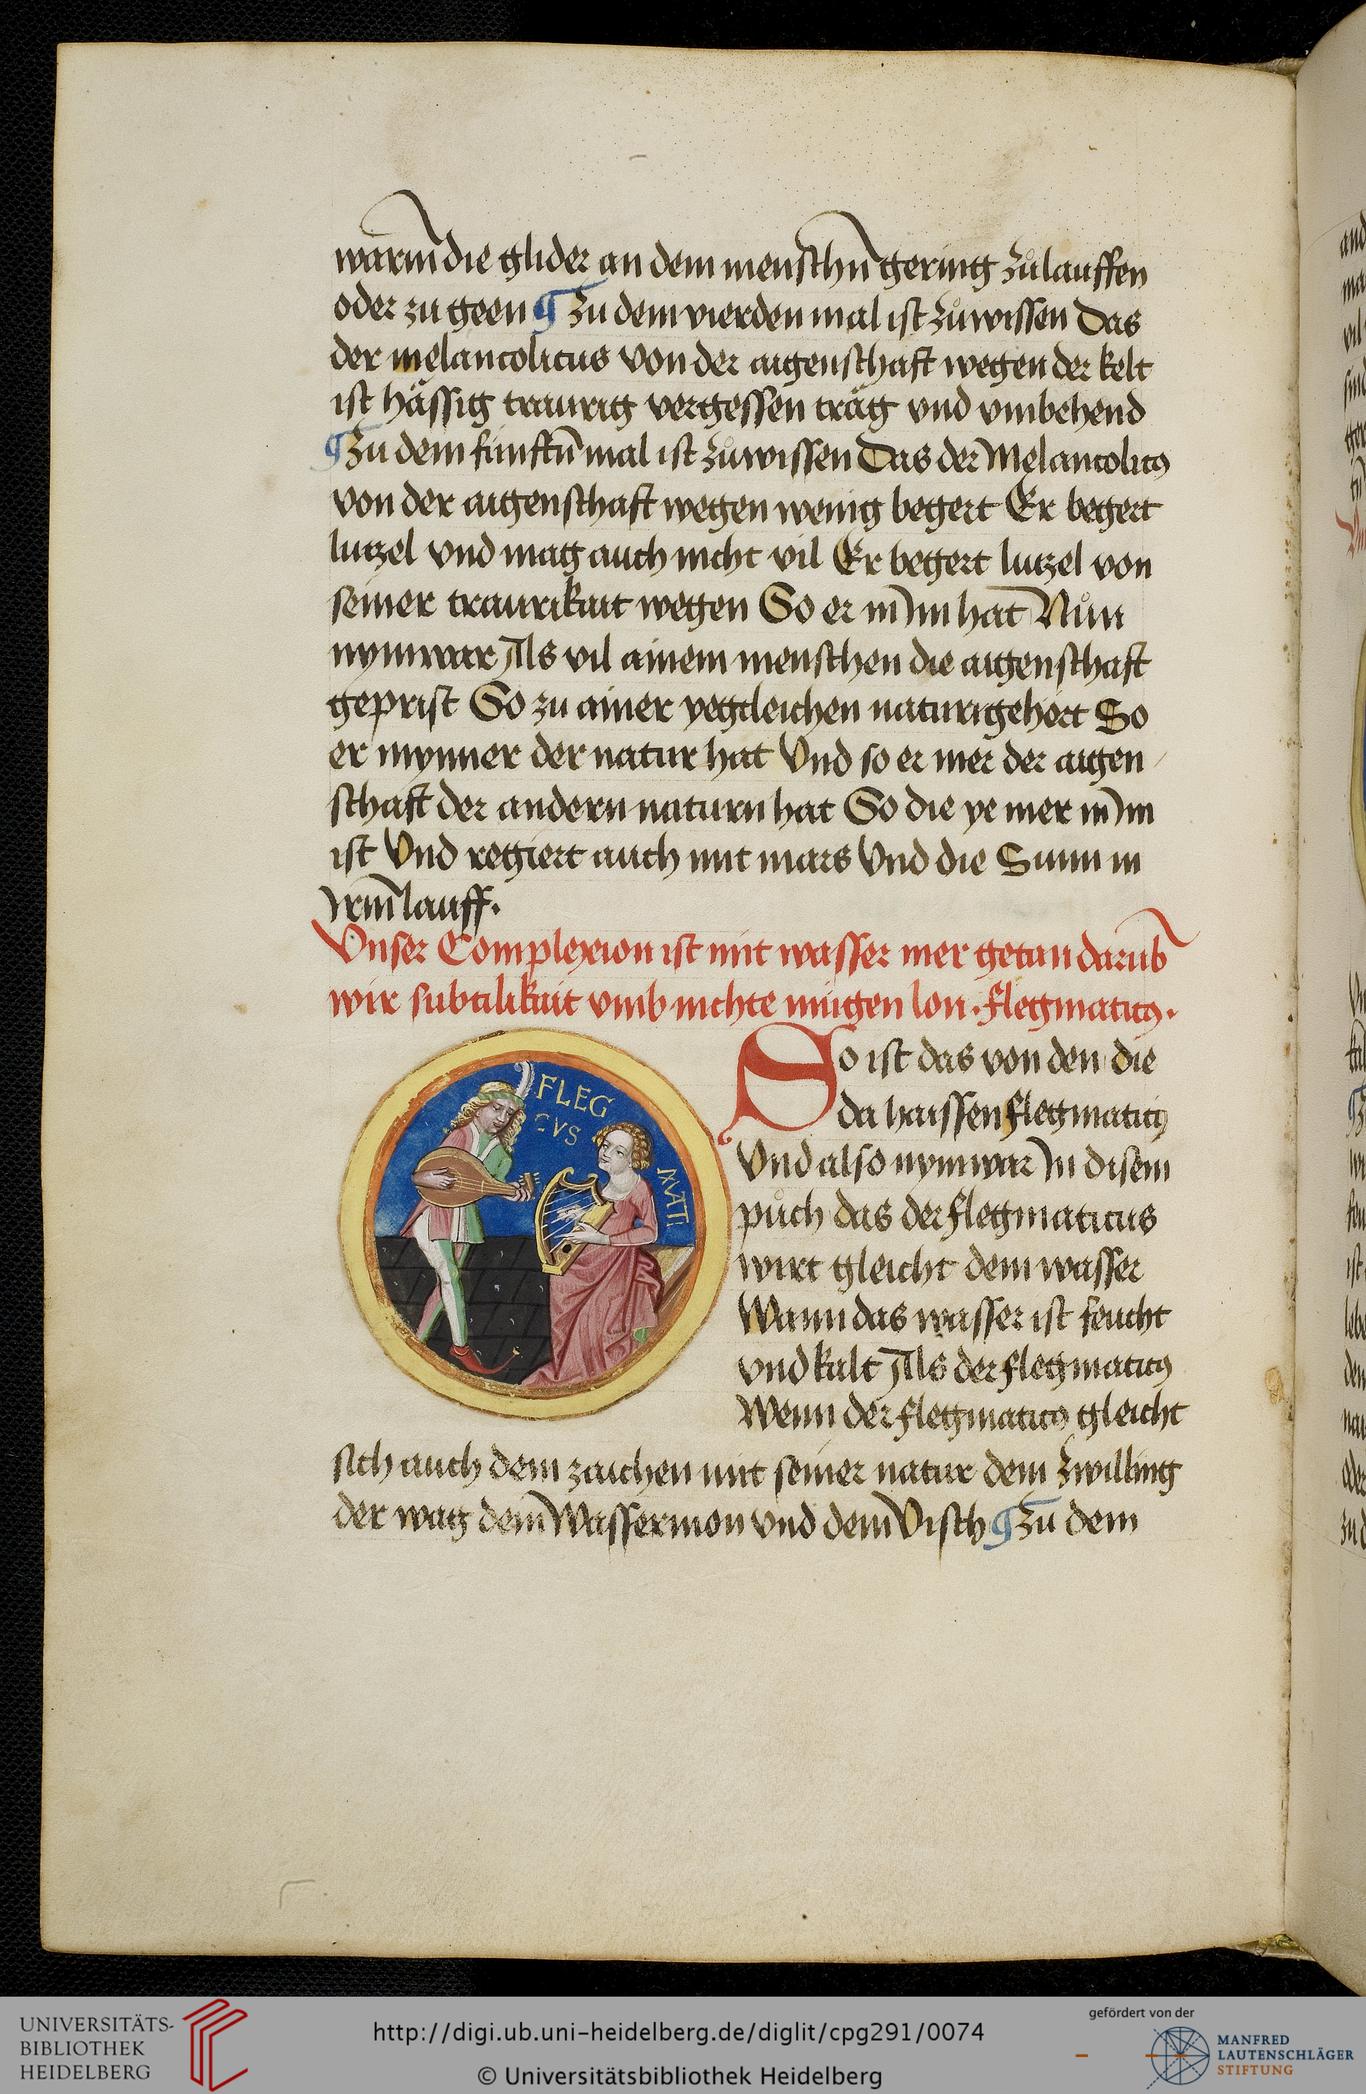 warm̄ die glider an dem menschn̄ gering zůlauffen
oder zu geen ¶ Zu dem vierden mal ist zůwissen Das
der melancolicus von der aigenschaft wegen der kelt
ist hässig traurig vergessen träg vnd vmbehend
¶ Zu dem funftn̄ mal ist zůwissen Das der Melancolicꝯ
von der aigenschaft wegen wenig begert Er begert
lutzel vnd mag auch nicht vil Er begert lutzel von
seiner traurikait wegen So er in Im hat Nůn
nymwar Als vil ainem menschen die aigenschaft
geprist So zu ainer yegcleichen natur gehört So
er mynner der natur hat Vnd so er mer der aigen
schaft der andern naturn hat So die ye mer in Im
ist Vnd regiert auch mit mars Vnd die Sunn in
Irm̄ lauff.
Vnser Complexion ist mit wasser mer getan darūb
wir subtilikait vmb nichte mügen lon. flegmaticꝯ.
FLEG
CVS
MATI
So ist das von den die
da haissen flegmaticꝯ
Vnd also nymwar In disem
půch das der flegmaticus
wirt gleicht dem wasser
Wann das wasser ist feucht
vnd kalt Als der flegmaticꝯ
Wenn der flegmaticꝯ gleicht
sich auch dem zaichen mit seiner natur dem Zwilling
der wag dem Wassermon vnd dem Visch ¶ Zu dem
UNIVERSITÄTS-
BIBLIOTHEK
HEIDELBERG
http://digi.ub.uni-heidelberg.de/diglit/cpg291/0074
© Universitätsbibliothek Heidelberg
gefördert von der
MANFRED
LAUTENSCHLÄGER
STIFTUNG